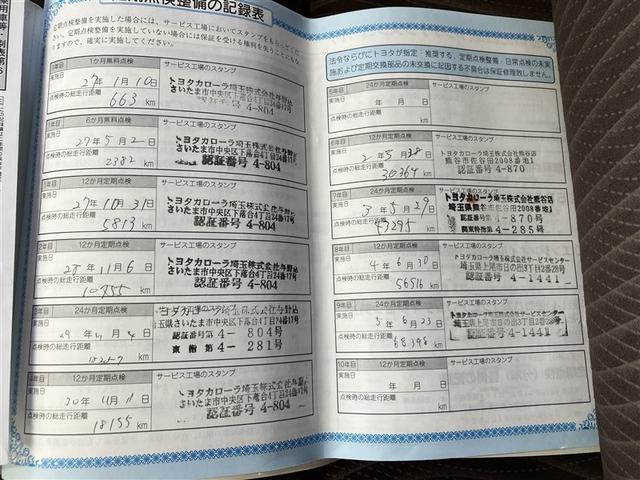 定期点検整備の記録表
定期点検整備を実施した場合には、サービス工場においてスタンプをもらってくだ
さい。定期点検整備を実施していない場合には保証を受ける権利を失うことにもな
りますので、確実に実施してください。
1か月無料点検
サービス工場のスタンプ
実施日
27年1月10日
トヨタカローラ埼玉株式会社与野店
さいたま市中央区下落合4丁目24番17号
認証番号 4-804
点検時の総走行距離
663 km
6か月無料点検
サービス工場のスタンプ
実施日
27年5月2日
トヨタカローラ埼玉株式会社与野店
さいたま市中央区下落合4丁目24番17号
認証番号 4-804
点検時の総走行距離
2382 km
1年目
12か月定期点検
サービス工場のスタンプ
実施日
27年10月31日
トヨタカローラ埼玉株式会社与野店
さいたま市中央区下落合4丁目24番17号
認証番号 4-804
点検時の総走行距離
5813 km
2年目
12か月定期点検
サービス工場のスタンプ
実施日
28年11月6日
トヨタカローラ埼玉株式会社与野店
さいたま市中央区下落合4丁目24番17号
認証番号 4-804
点検時の総走行距離
km
3年目
24か月定期点検
サービス工場のスタンプ
実施日
トヨタカローラ埼玉株式会社与野店
埼玉県さいたま市中央区下落合4丁目24番17号
認証番号 4-804号
東指第 4-281号
点検時の総走行距離
km
4年目
12か月定期点検
サービス工場のスタンプ
実施日
30年11月11日
トヨタカローラ埼玉株式会社与野店
さいたま市中央区下落合4丁目24番17号
認証番号 4-804
点検時の総走行距離
18155 km
法令ならびにトヨタが指定・推奨する、定期点検整備・日常点検の未実
施および定期交換部品の未交換に起因する不具合は保証修理致しません。
5年目
24か月定期点検
サービス工場のスタンプ
実施日
年 月 日
点検時の総走行距離
km
6年目
12か月定期点検
サービス工場のスタンプ
実施日
2年5月 日
トヨタカローラ埼玉株式会社熊谷店
熊谷市佐谷田2008番地1
認証番号 4-870
点検時の総走行距離
30364 km
24か月定期点検
サービス工場のスタンプ
実施日
3年5月29日
トヨタカローラ埼玉株式会社熊谷店
埼玉県熊谷市佐谷田2008番地1
認証番号第 4-870号
関東指第 4-285号
点検時の総走行距離
43295 km
8年目
12か月定期点検
サービス工場のスタンプ
実施日
4年6月30日
トヨタカローラ埼玉株式会社サービスセンター
埼玉県上尾市日の出3丁目2番28号
認証番号 4-1441
点検時の総走行距離
56516 km
9年目
24か月定期点検
サービス工場のスタンプ
実施日
5年6月23日
トヨタカローラ埼玉株式会社サービスセンター
埼玉県上尾市日の出3丁目2番28号
認証番号 4-1441
点検時の総走行距離
68398 km
10年目
12か月定期点検
サービス工場のスタンプ
実施日
年 月 日
点検時の総走行距離
km